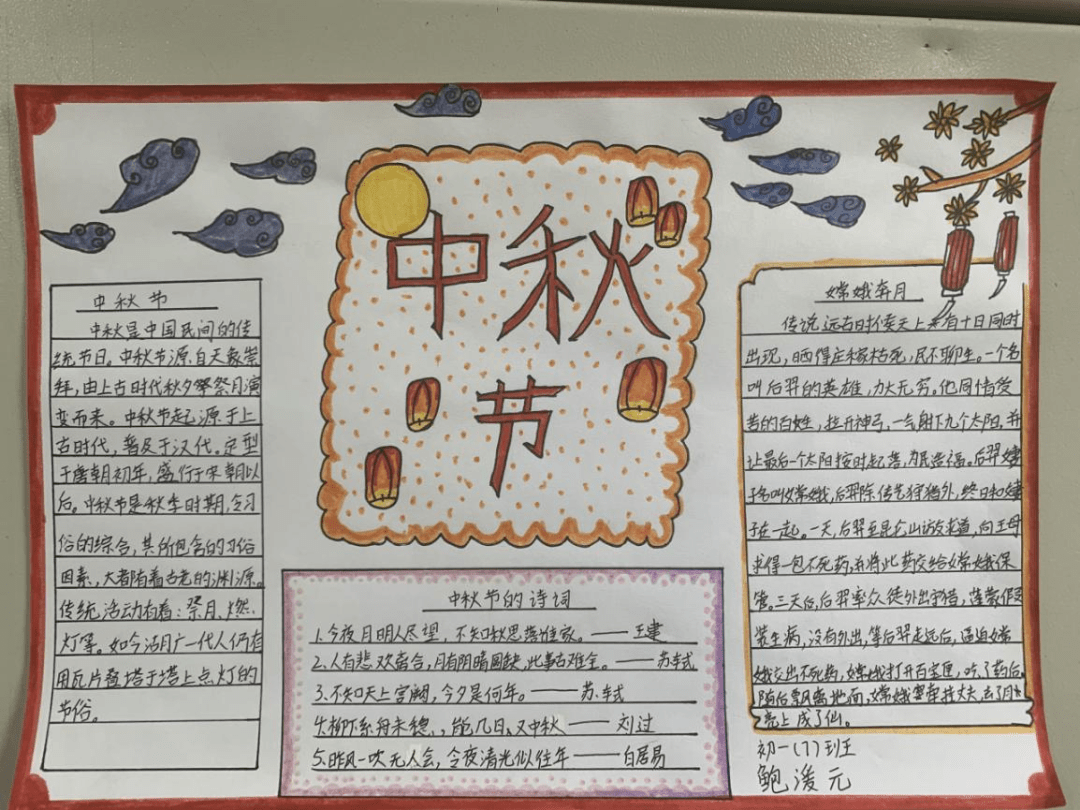 中秋节
中秋节
中秋是中国民间的传
统节日。中秋节源自天象崇
拜,由上古时代秋夕祭月演
变而来。中秋节起源于上
古时代,普及于汉代。定型
于唐朝初年,盛行于宋朝以
后。中秋节是秋季时期,令习
俗的综合,其所包含的习俗
因素,大者陏着古老的渊源。
传统活动有着:祭月、燃、
灯等。如今沽月广一代人仍有
用瓦片叠塔于塔上点灯的
节俗。
中秋节的诗词
1.今夜月明人尽望,不知秋思落谁家。——王建
2.人有悲欢离合,月有阴晴圆缺,此事古难全。——苏轼
3.不知天上宫阙,今夕是何年。——苏轼
4.柳下系舟未稳,,能几日、又中秋——刘过
5.昨风一吹无人会,今夜清光似往年——白居易
嫦娥奔月
传说远古时候天上来有十日同时
出现,晒得庄稼枯死,民不聊生。一个名
叫后羿的英雄,力大无穷。他同情受
苦的百姓,拉开神弓,一气射下九个太阳,并
让最后一个太阳按时起落,为民造福。后羿妻
子名叫嫦娥,后羿除传艺狩猎外,终日和妻
子在一起。一天,后羿至昆仑山访友求道,向王母
求得一包不死药,并将此药交给嫦娥保
管。三天后,后羿率众徒外出狩猎,蓬蒙假
装生病,没有外出,等后羿走远后,逼迫嫦
娥交出不死药,嫦娥打开百宝匣,吃了药后
随后飘离地面,嫦娥牵挂丈夫,去了月
亮上成了仙。
初一(7)班
鲍湲元